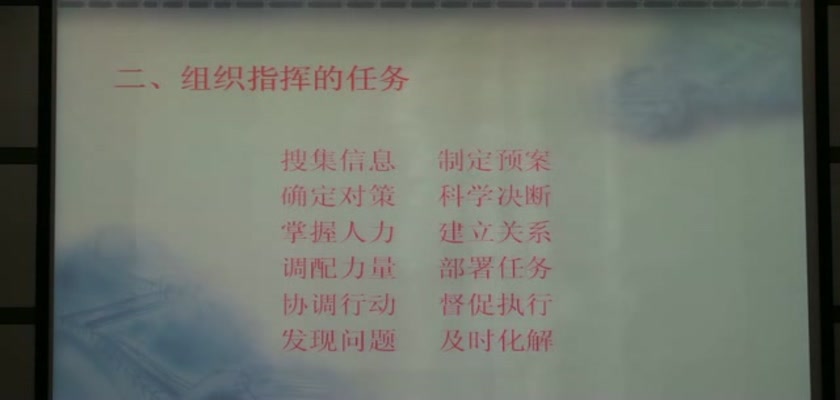 二、组织指挥的任务
搜集信息 制定预案
确定对策 科学决断
掌握人力 建立关系
调配力量 部署任务
协调行动 督促执行
发现问题 及时化解